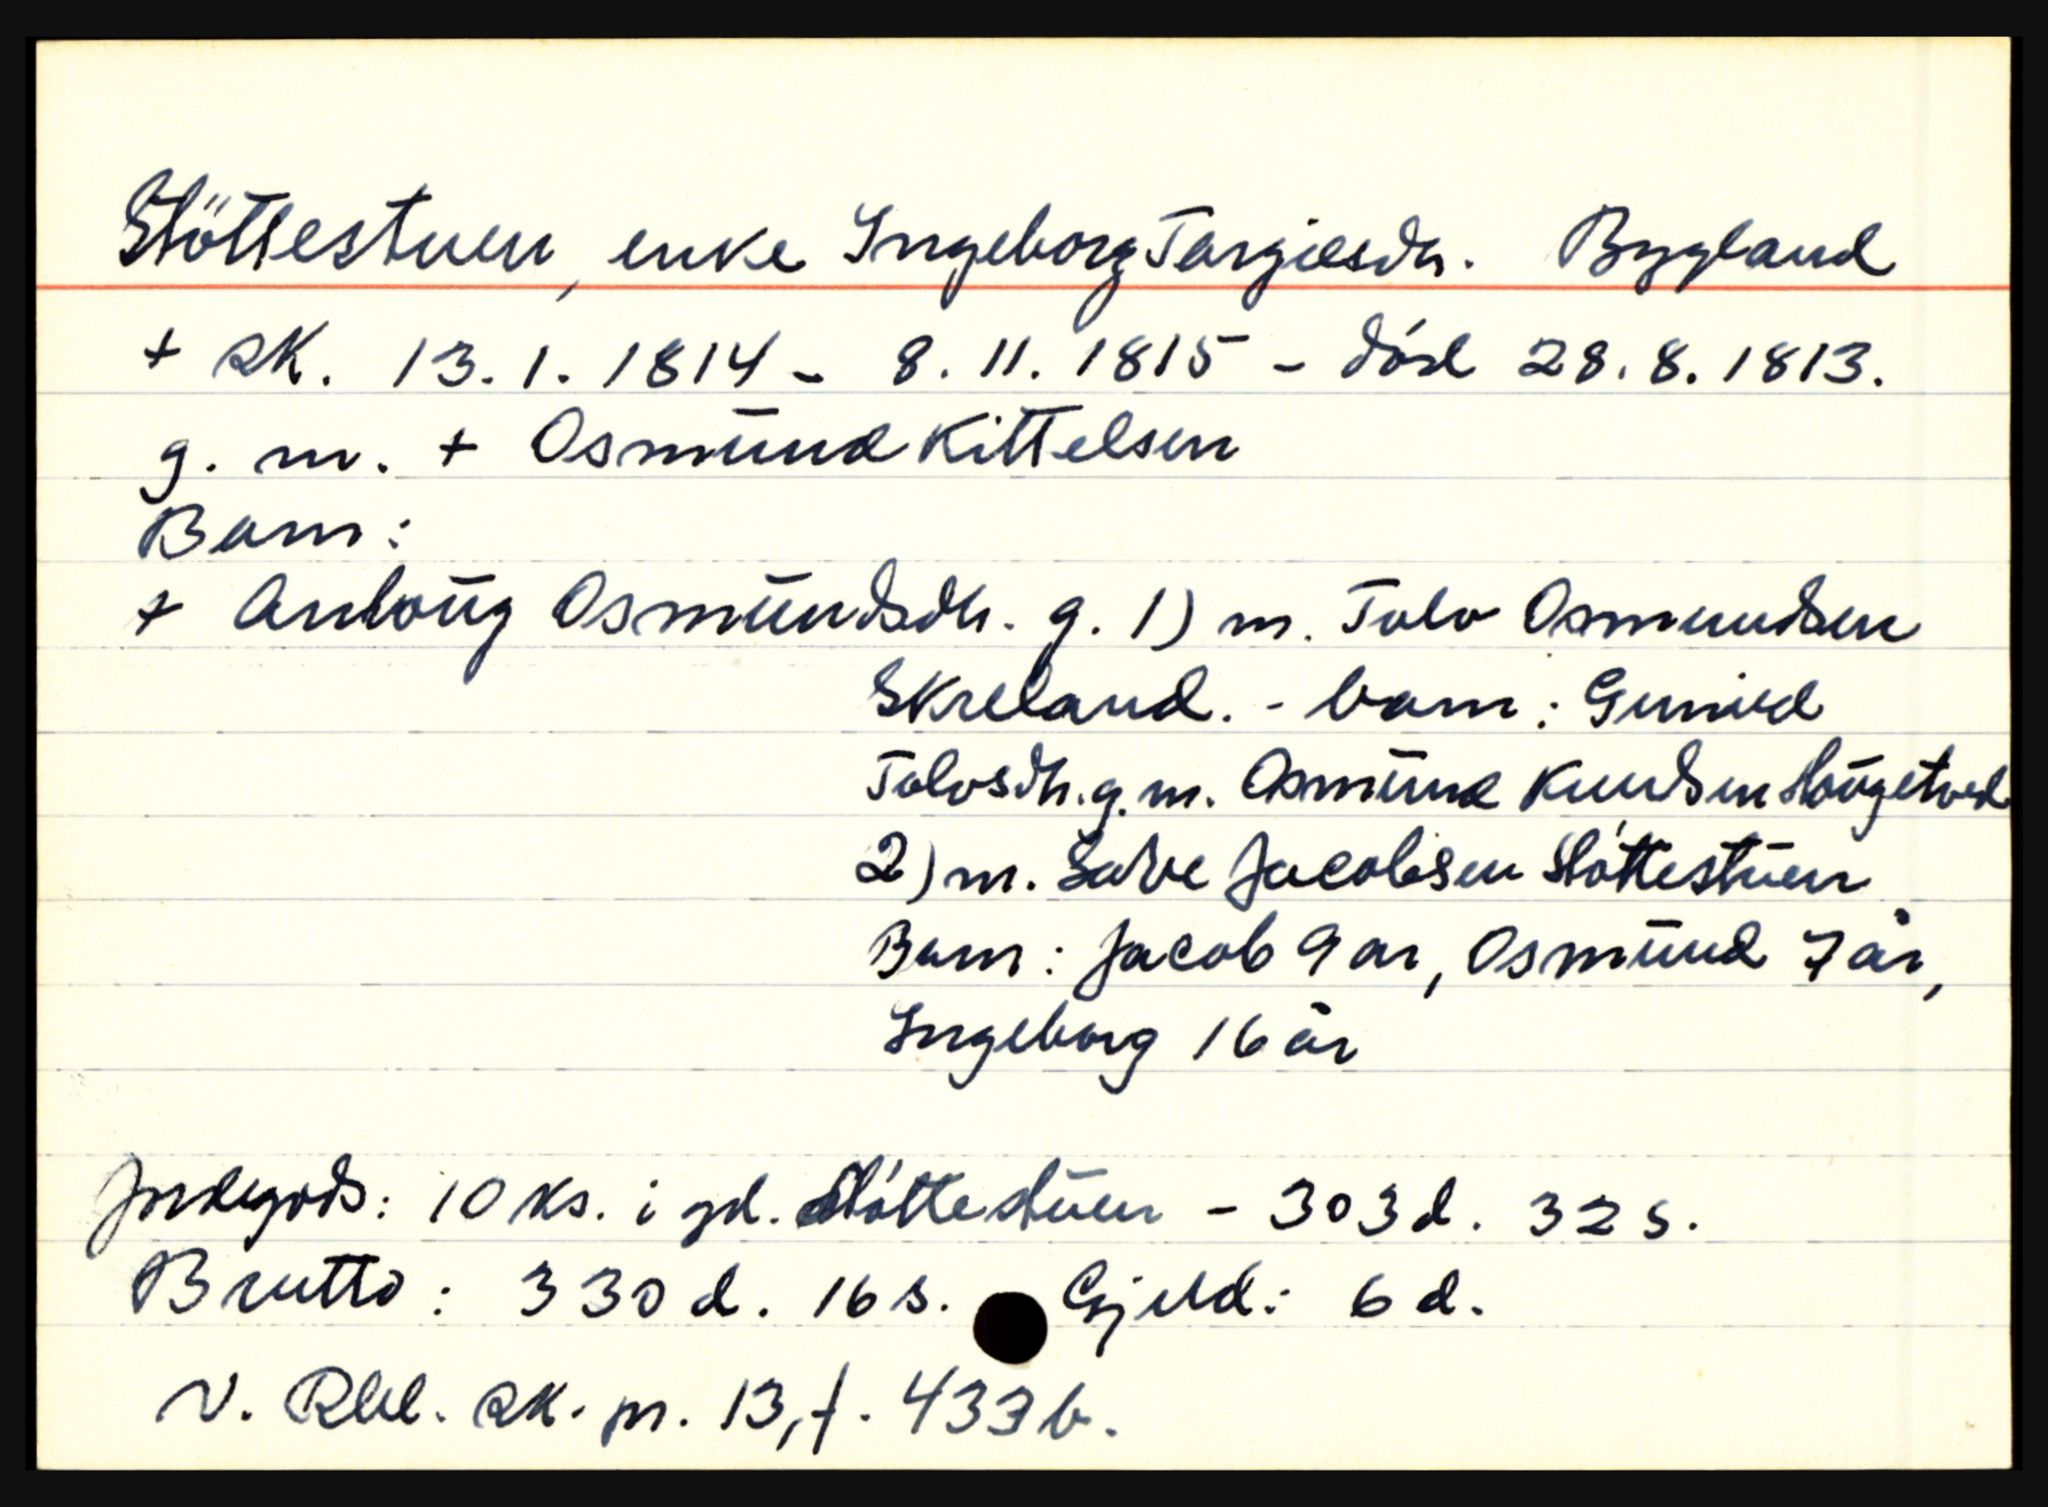 Støttestuen, enke Ingeborg Targiesdtr. Bygland
+ sk. 13.1.1814 - 8.11.1815 - död 28.8.1813.
g. m. + Osmund Kittelsen
Barn:
+ Anloug Osmundsdtr. g. 1) m. Tolv Osmundsen
Skreland. - barn: Gunild
Tolvsdtr. g. m. Osmund Knudsen Hougetved
2) m. Salve Jacobsen Støttestuen
Barn: Jacob 9 år, Osmund 7 år,
Ingeborg 16 år
Jordegods: 10 ks. i gd. Støttestuen - 303 d. 32 s.
Brutto: 330 d. 16 s. Gjeld: 6 d.
N. Rbl. sk. pr. 13, f. 433 b.